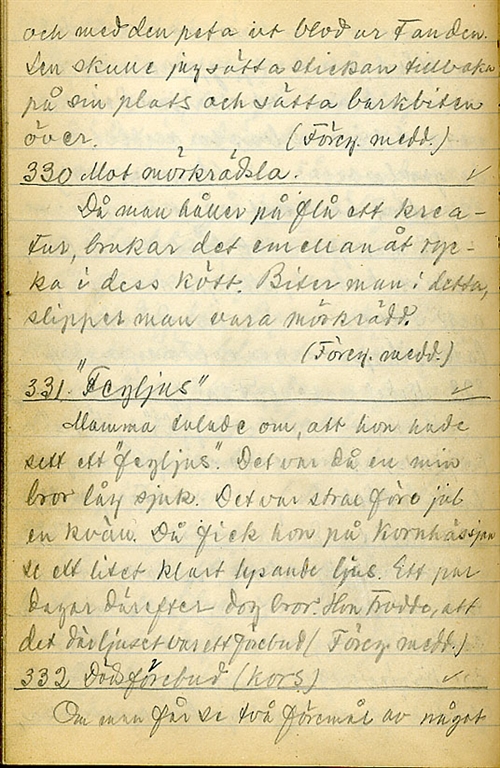 och med den peta ut blod ur tanden.
Sen skulle jag sätta stickan tillbaka
på sin plats och sätta barkbiten
över. (Föreg. medd.)
330 Mot mörkrädsla.
Då man håller på flå ett krea-
tur, brukar det emellanåt ryc-
ka i dess kött. Biter man i detta,
slipper man vara mörkrädd.
(Föreg. medd.)
331. "Fegljus"
Mamma talade om, att hon hade
sett ett "fegljus". Det var då en min
bror låg sjuk. Det var strax före jul
en kväll. Då fick hon på kornhässjan
se ett litet klart lysande ljus. Ett par
dagar därefter dog bror. Hon trodde, att
det där ljuset var ett förebud (Föreg. medd.)
332 Dödsförebud (Kors)
Om man får se två föremål av något